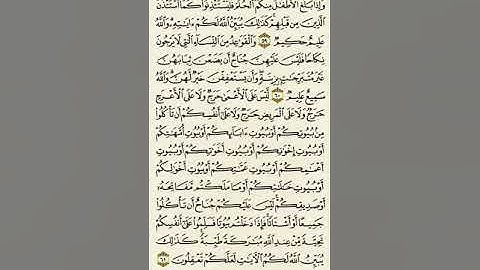 وَإِذَا بَلَغَ ٱلْأَطْفَٰلُ مِنكُمُ ٱلْحُلُمَ فَلْيَسْتَـْٔذِنُوا۟ كَمَا ٱسْتَـْٔذَنَ
ٱلَّذِينَ مِن قَبْلِهِمْ كَذَٰلِكَ يُبَيِّنُ ٱللَّهُ لَكُمْ ءَايَٰتِهِۦ وَٱللَّهُ
عَلِيمٌ حَكِيمٌ ٥٩ وَٱلْقَوَٰعِدُ مِنَ ٱلنِّسَآءِ ٱلَّٰتِى لَا يَرْجُونَ
نِكَاحًا فَلَيْسَ عَلَيْهِنَّ جُنَاحٌ أَن يَضَعْنَ ثِيَابَهُنَّ
غَيْرَ مُتَبَرِّجَٰتٍۭ بِزِينَةٍ وَأَن يَسْتَعْفِفْنَ خَيْرٌ لَّهُنَّ وَٱللَّهُ
سَمِيعٌ عَلِيمٌ ٦٠ لَّيْسَ عَلَى ٱلْأَعْمَىٰ حَرَجٌ وَلَا عَلَى ٱلْأَعْرَجِ
حَرَجٌ وَلَا عَلَى ٱلْمَرِيضِ حَرَجٌ وَلَا عَلَىٰٓ أَنفُسِكُمْ أَن تَأْكُلُوا۟
مِنۢ بُيُوتِكُمْ أَوْ بُيُوتِ ءَابَآئِكُمْ أَوْ بُيُوتِ أُمَّهَٰتِكُمْ
أَوْ بُيُوتِ إِخْوَٰنِكُمْ أَوْ بُيُوتِ أَخَوَٰتِكُمْ أَوْ بُيُوتِ
أَعْمَٰمِكُمْ أَوْ بُيُوتِ عَمَّٰتِكُمْ أَوْ بُيُوتِ أَخْوَٰلِكُمْ
أَوْ بُيُوتِ خَٰلَٰتِكُمْ أَوْ مَا مَلَكْتُم مَّفَاتِحَهُۥٓ
أَوْ صَدِيقِكُمْ لَيْسَ عَلَيْكُمْ جُنَاحٌ أَن تَأْكُلُوا۟
جَمِيعًا أَوْ أَشْتَاتًا فَإِذَا دَخَلْتُم بُيُوتًا فَسَلِّمُوا۟ عَلَىٰٓ أَنفُسِكُمْ
تَحِيَّةً مِّنْ عِندِ ٱللَّهِ مُبَٰرَكَةً طَيِّبَةً كَذَٰلِكَ
يُبَيِّنُ ٱللَّهُ لَكُمُ ٱلْءَايَٰتِ لَعَلَّكُمْ تَعْقِلُونَ ٦١